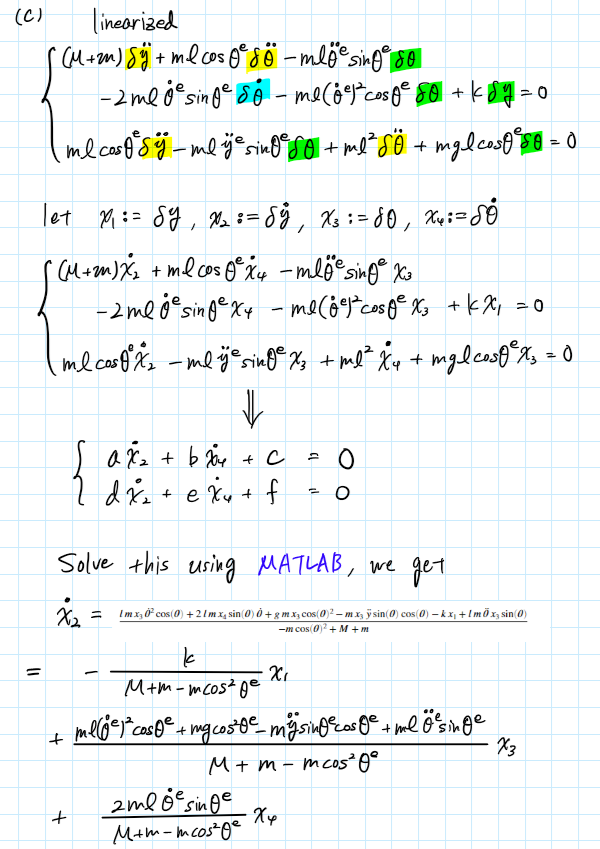 (c) linearized
(M+m) δÿ + ml cos θᵉ δθ̈ − mlθ̈ᵉ sinθᵉ δθ
−2ml θ̇ᵉ sinθᵉ δθ̇ − ml(θ̇ᵉ)² cosθᵉ δθ + k δy = 0
ml cosθᵉ δÿ − ml ÿᵉ sinθᵉ δθ + ml² δθ̈ + mgl cosθᵉ δθ = 0
let x₁ := δy , x₂ := δẏ , x₃ := δθ , x₄ := δθ̇
(M+m)ẋ₂ + ml cos θᵉ ẋ₄ − mlθ̈ᵉ sinθᵉ x₃
−2ml θ̇ᵉ sinθᵉ x₄ − ml(θ̇ᵉ)² cosθᵉ x₃ + k x₁ = 0
ml cosθᵉ ẋ₂ − ml ÿᵉ sinθᵉ x₃ + ml² ẋ₄ + mgl cosθᵉ x₃ = 0
⇓
a ẋ₂ + b ẋ₄ + c = 0
d ẋ₂ + e ẋ₄ + f = 0
Solve this using MATLAB, we get
l m x₃ θ̇² cos(θ) + 2 l m x₄ sin(θ) θ̇ + g m x₃ cos(θ)² − m x₃ ÿ sin(θ) cos(θ) − k x₁ + l m θ̈ x₃ sin(θ)
ẋ₂ =
−m cos(θ)² + M + m
k
= − x₁
M+m − m cos² θᵉ
ml(θ̇ᵉ)² cosθᵉ + mg cos²θᵉ − mÿ sinθᵉ cosθᵉ + ml θ̈ᵉ sinθᵉ
+ x₃
M + m − m cos² θᵉ
2ml θ̇ᵉ sinθᵉ
+ x₄
M+m − m cos² θᵉ